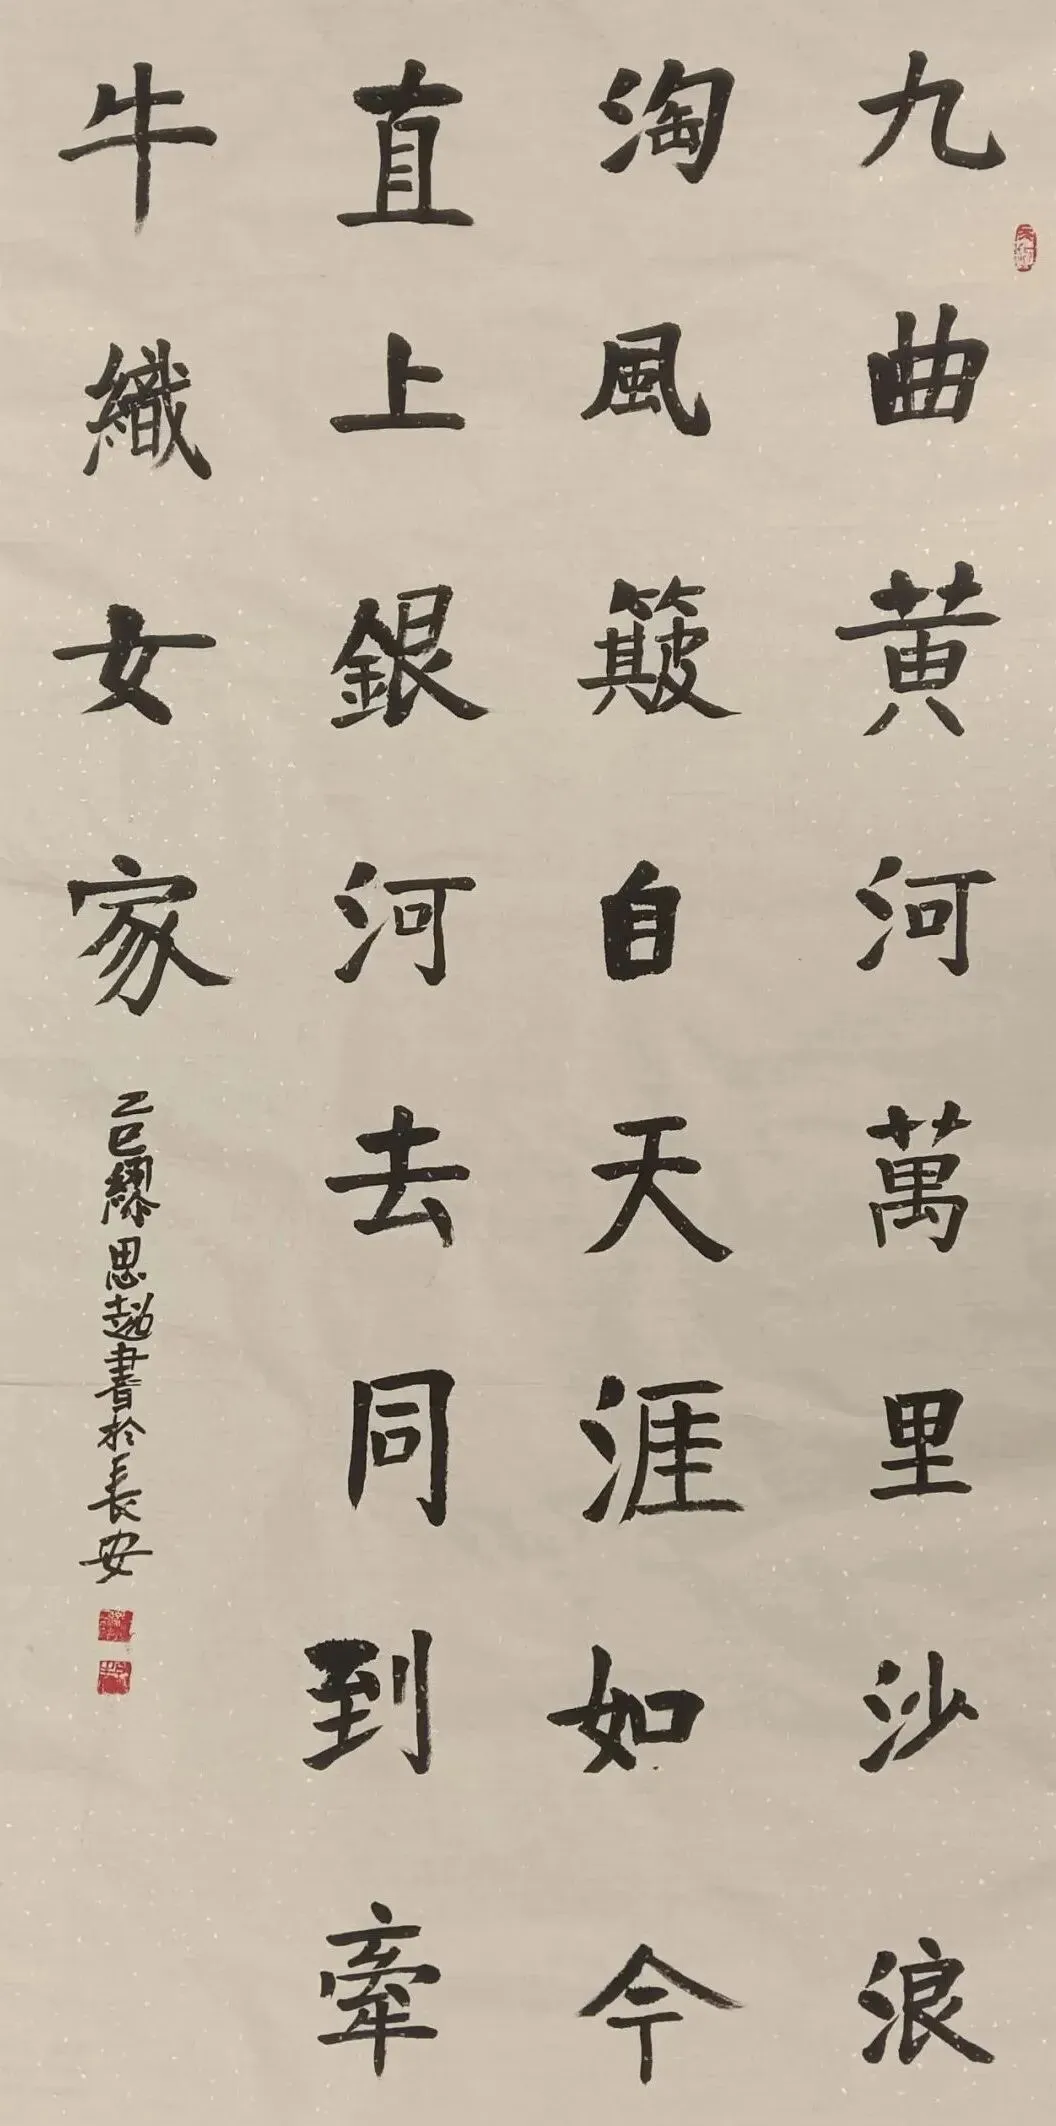 九曲黄河萬里沙浪
淘風簸自天涯如今
直上銀河去同到牽
牛織女家
乙巳繆思超書於長安